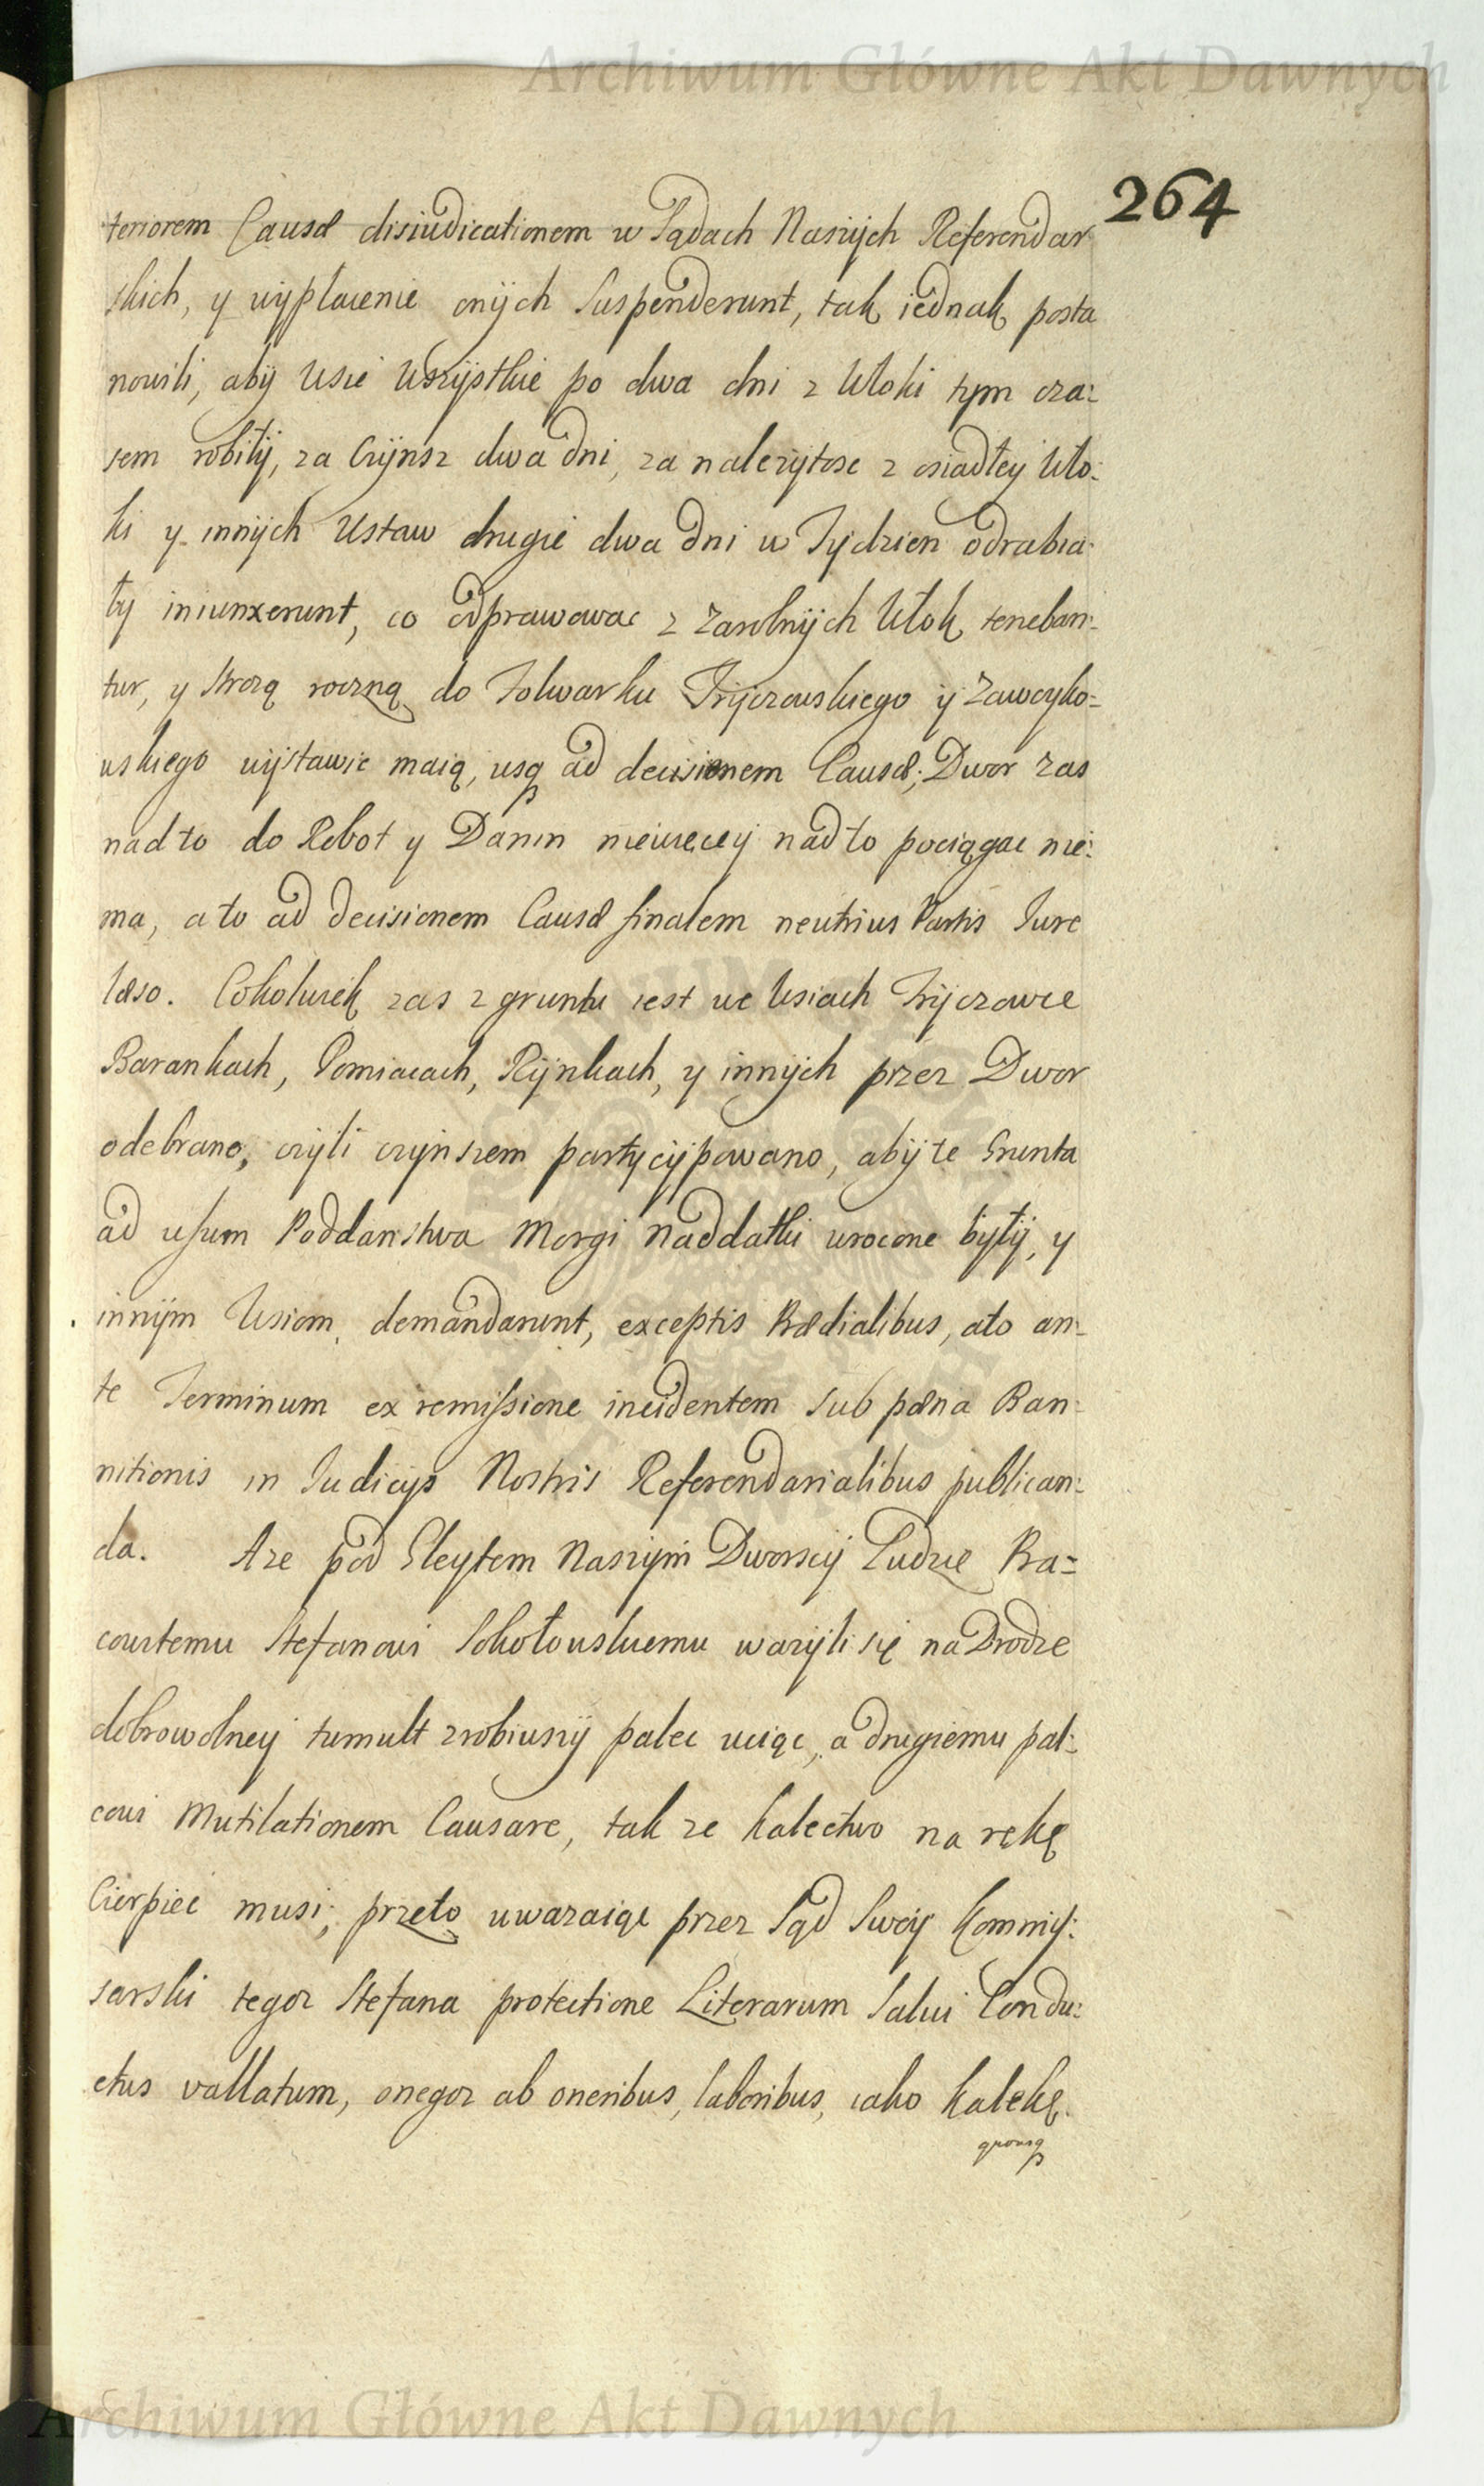 Archiwum Główne Akt Dawnych
264
teriorem Causæ disiudicationem w Sądach Naszÿch Referendar
skich, y wÿpłacenie onÿch Suspenderunt, tak iednak posta
nowili, abÿ Wsie Wszÿstkie po dwa dni z Włoki tym cza:
sem robiłÿ, za Czÿnsz dwa dni, za nalezÿtosc z osiadłeÿ Wło:
ki y innÿch Ustaw drugie dwa dni w Tydzien odrabia:
ły iniunxerunt, co odprawowac z Zarolnÿch Włok teneban:
tur, y strozą roczną do Folwarku Trÿczowskiego ÿ Zawoyko:
wskiego wÿstawic maią, usq ad decisionem Causæ; Dwor zas
nad to do Robot y Danin niewięceÿ nad to pociągac nie:
ma, a to ad decisionem Causæ finalem neutrius Partis Jure
læso. Cokolwiek zas z gruntu iest we Wsiach Trÿczowce
Barankach, Pomiacach, Rÿnkach, y innÿch przez Dwor
odebrano, czÿli czÿnszem partÿcÿpowano, abÿ te Grunta
ad usum Poddanstwa Morgi Naddatki wrocone bÿłÿ, y
innÿm Wsiom demandarunt, exceptis Prædialibus, ato an:
te Terminum ex remissione incidentem sub pæna Ban:
nitionis in Judicijs Nostris Referendarialibus publican:
da. Aze pod Gleytem Naszym Dworscÿ Ludzie Pra=
cowitemu Stefanowi Sokołowskiemu wazÿli się na Drodze
dobrowolneÿ tumult zrobiwszÿ palec uciąc, a drugiemu pal:
cowi Mutilationem Causare, tak ze kalectwo na rękę
Cierpiec musi; przeto uwazaiąc przez Sąd Swoÿ Kommiſ:
sarski tegoz Stefana protectione Literarum Salvi Condu:
ctus vallatum, onegoz ab oneribus, laboribus, iako kalekę
quousq
Archiwum Główne Akt Dawnych